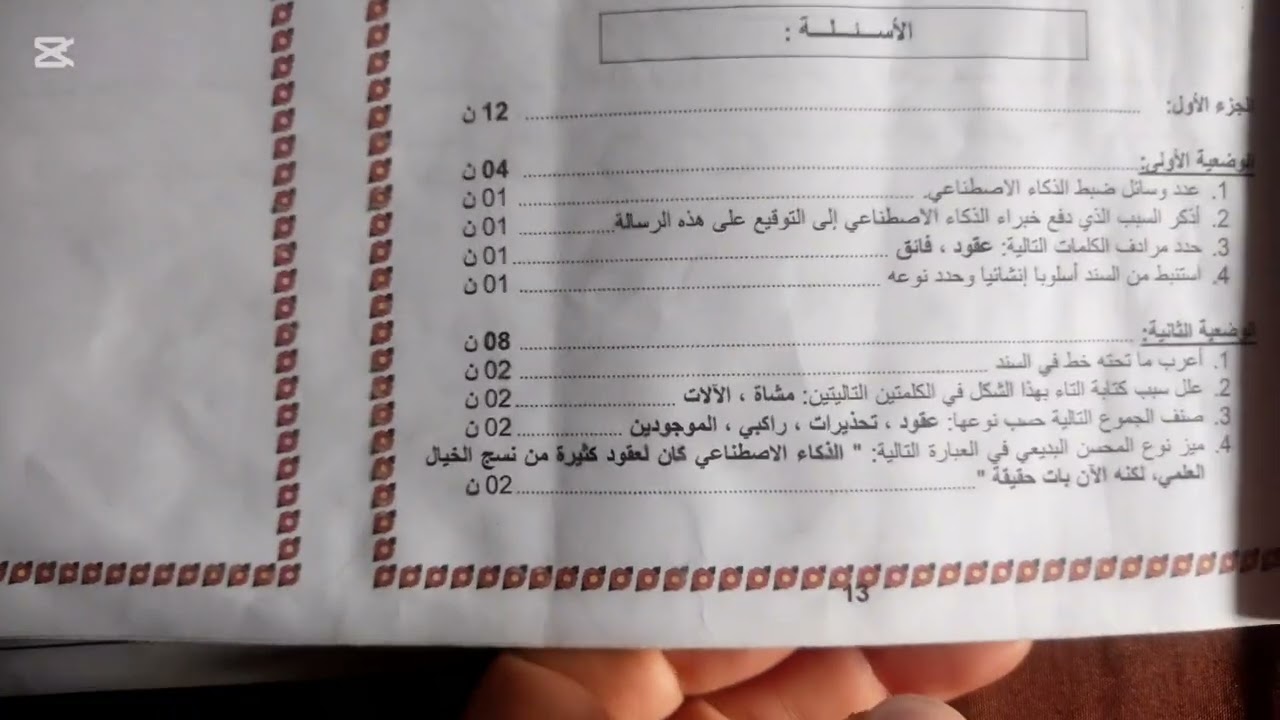 الأسئلة :
الجزء الأول: ........ 12 ن
الوضعية الأولى: ........ 04 ن
1. عدد وسائل ضبط الذكاء الاصطناعي. ........ 01 ن
2. أذكر السبب الذي دفع خبراء الذكاء الاصطناعي إلى التوقيع على هذه الرسالة ........ 01 ن
3. حدد مرادف الكلمات التالية: عقود ، فائق ........ 01 ن
4. استنبط من السند أسلوبا إنشائيا وحدد نوعه ........ 01 ن
الوضعية الثانية: ........ 08 ن
1. أعرب ما تحته خط في السند ........ 02 ن
2. علل سبب كتابة التاء بهذا الشكل في الكلمتين التاليتين: مشاة ، الآلات ........ 02 ن
3. صنف الجموع التالية حسب نوعها: عقود ، تحذيرات ، راكبي ، الموجودين ........ 02 ن
4. ميز نوع المحسن البديعي في العبارة التالية: " الذكاء الاصطناعي كان لعقود كثيرة من نسج الخيال
العلمي، لكنه الآن بات حقيقة " ........ 02 ن
13